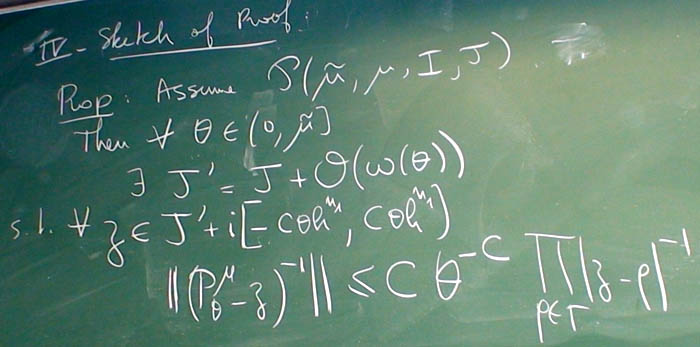 IV - Sketch of Proof:
Prop: Assume P(μ̃, μ, I, J).
Then ∀ θ ∈ (0, μ̃]
∃ J' = J + O(ω(θ))
s.t. ∀ z ∈ J' + i[-c₀h^{n₁}, c₀h^{n₁}]
‖(P_θ^μ - z)^{-1}‖ ≤ C θ^{-C} ∏_{ρ∈Γ} |z - ρ|^{-1}